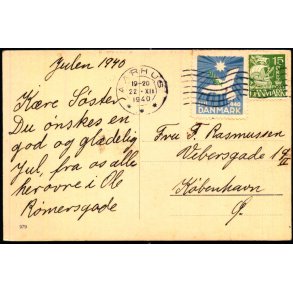 Julen 1940
Kære Søster
Du ønskes en
god og glædelig
Jul, fra os alle
herovre i Ole
Rømersgade
979
AARHUS
19-20
22.-XII
1940
JUL
1940
DANMARK
15
DANMARK
Fru S. Rasmussen
Webersgade 14
II
København
Ø.